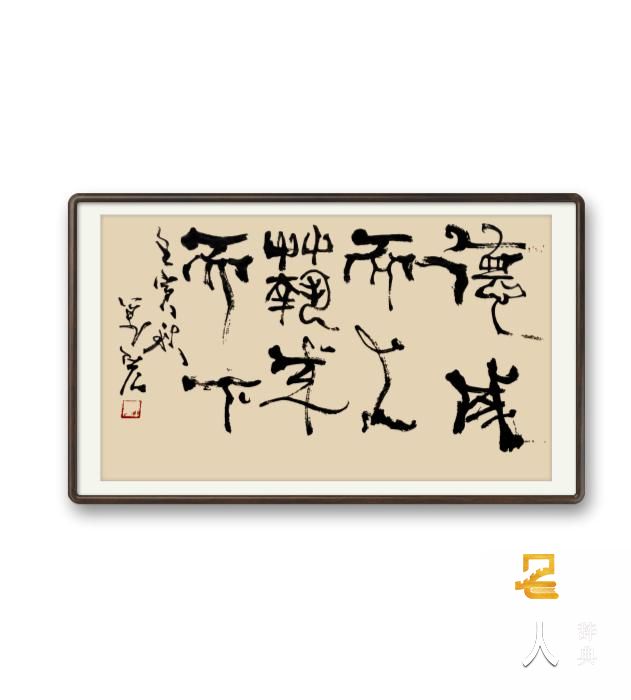 德成
而上
藝成
而下
壬寅秋
人
辞典